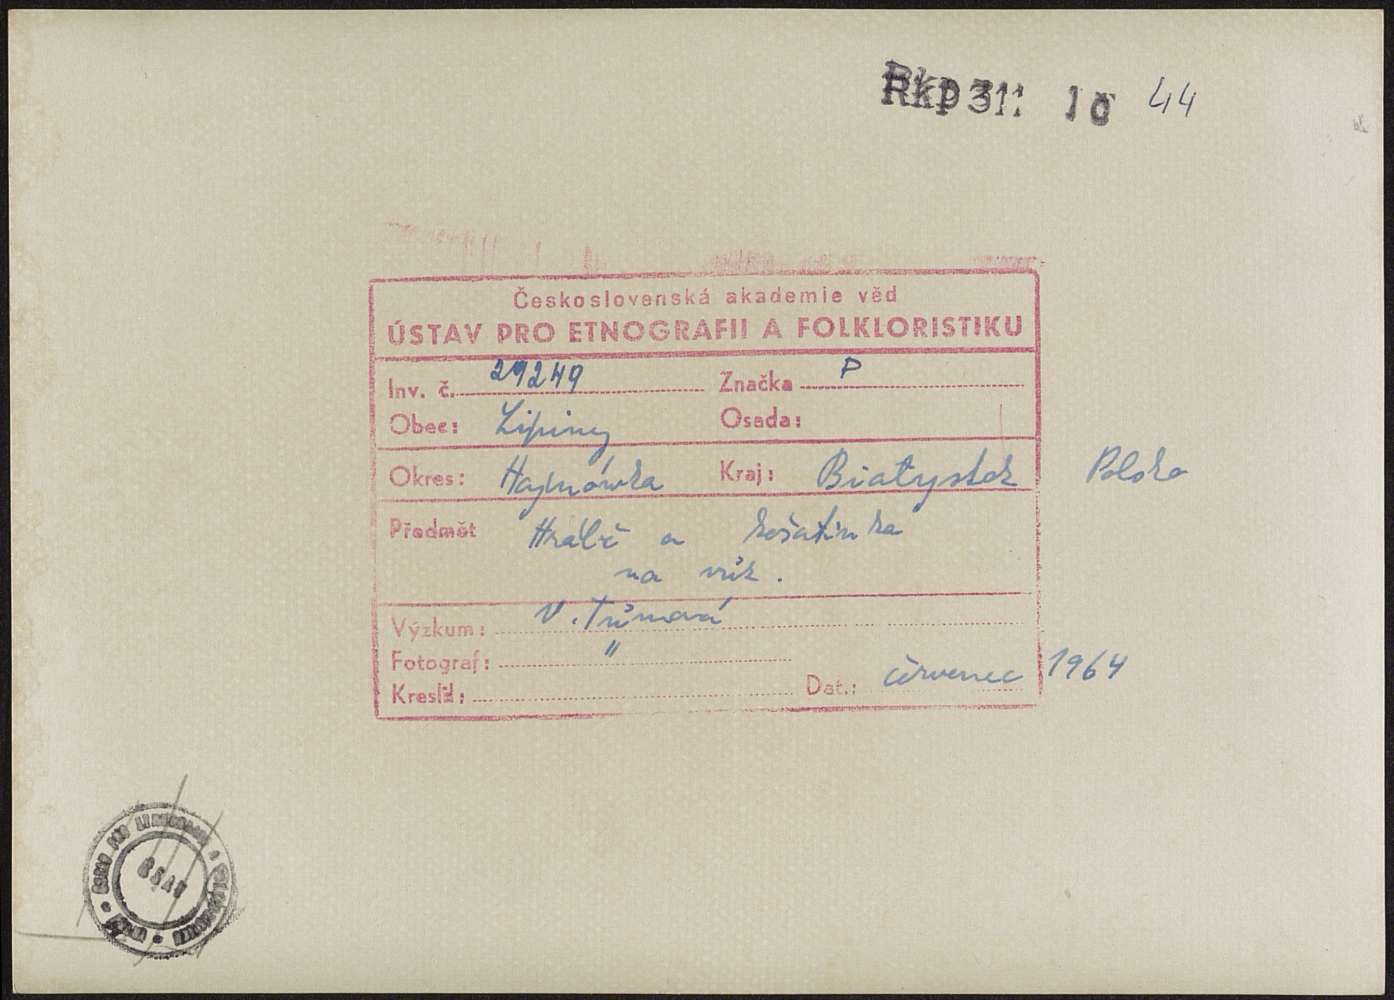 44
Československá akademie věd
ÚSTAV PRO ETNOGRAFII A FOLKLORISTIKU
Inv. č. 29249 Značka P
Obec: Lipiny Osada:
Okres: Hajnówka Kraj: Białystok Polsko
Předmět Hrábě a košatinka
na vůz.
Výzkum: V. Tůmová
Fotograf: "
Kreslil: Dat.: červenec 1964
ČSAV